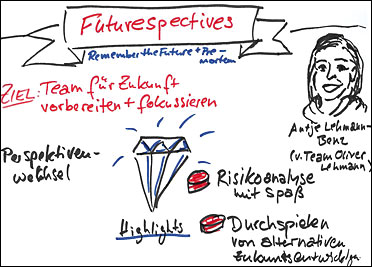 Futurespectives
Remember the Future + Pre-
mortem
ZIEL: Team für Zukunft
vorbereiten + fokussieren
Antje Lehmann-
Benz
(v. Team Oliver
Lehmann)
Perspektiven-
wechsel
Highlights
Risikoanalyse
mit Spaß
Durchspielen
von alternativen